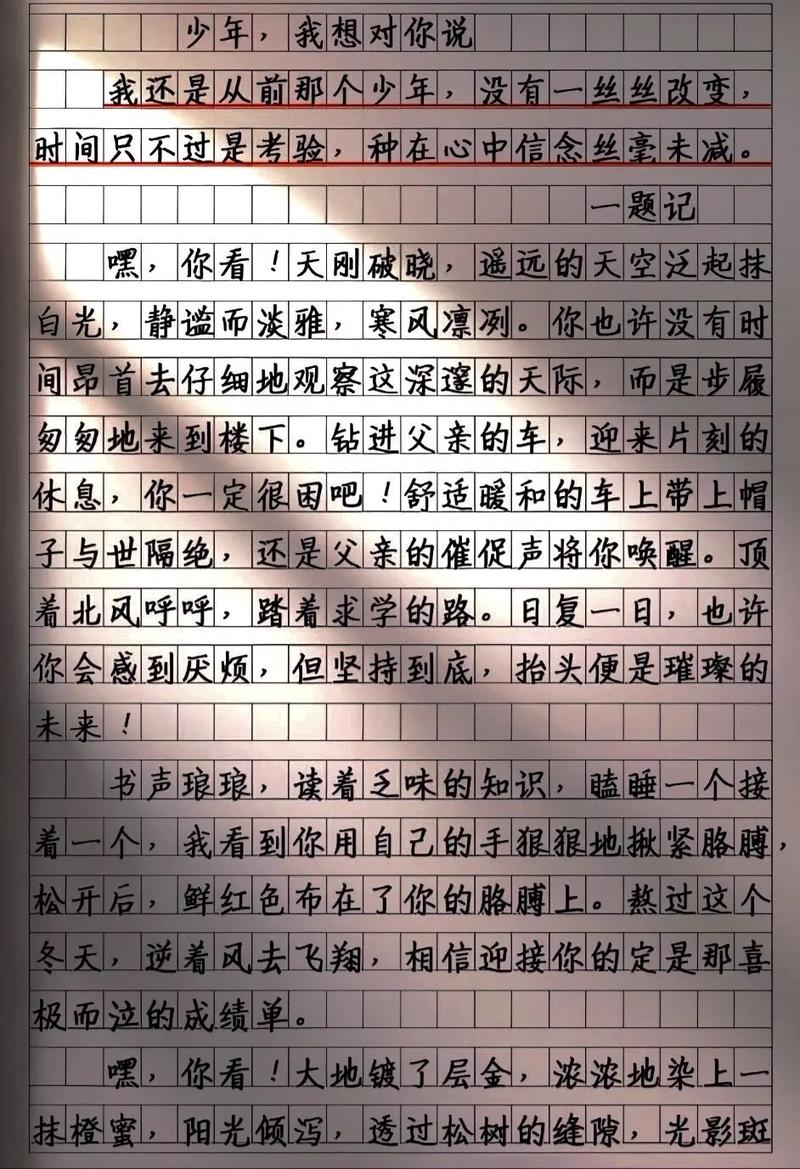 少年，我想对你说
我还是从前那个少年，没有一丝丝改变，
时间只不过是考验，种在心中信念丝毫未减。
一题记
嘿，你看！天刚破晓，遥远的天空泛起抹
白光，静谧而淡雅，寒风凛冽。你也许没有时
间昂首去仔细地观察这深邃的天际，而是步履
匆匆地来到楼下。钻进父亲的车，迎来片刻的
休息，你一定很困吧！舒适暖和的车上带上帽
子与世隔绝，还是父亲的催促声将你唤醒。顶
着北风呼呼，踏着求学的路。日复一日，也许
你会感到厌烦，但坚持到底，抬头便是璀璨的
未来！
书声琅琅，读着乏味的知识，瞌睡一个接
着一个，我看到你用自己的手狠狠地揪紧胳膊，
松开后，鲜红色布在了你的胳膊上。熬过这个
冬天，逆着风去飞翔，相信迎接你的定是那喜
极而泣的成绩单。
嘿，你看！大地镀了层金，浓浓地染上一
抹橙蜜，阳光倾泻，透过松树的缝隙，光影斑